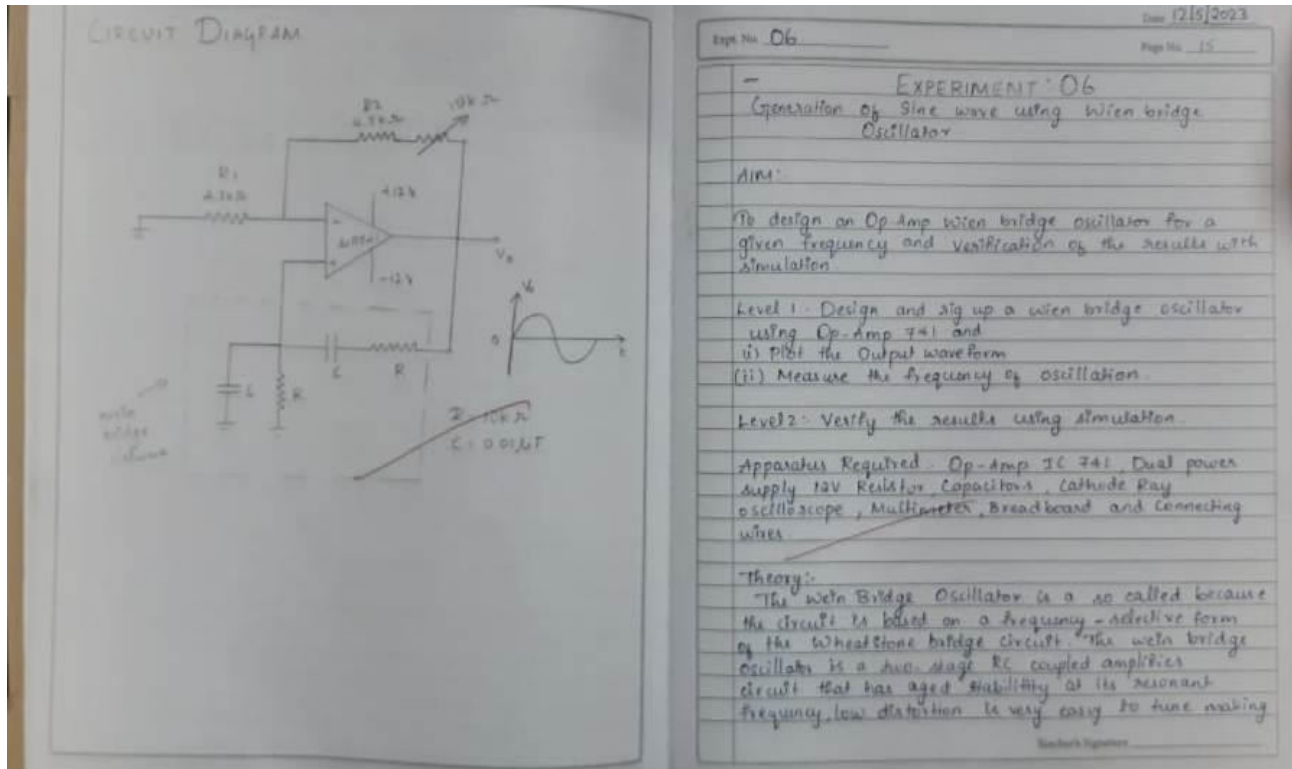 CIRCUIT DIAGRAM
R2
10k Ω
R1
+12V
-
+
-12V
Vo
Vo
0
t
C
R
R
bridge
C = 0.01µF
Date 12/5/2023
Expt. No. 06
Page No. 15
EXPERIMENT : 06
Generation of Sine wave using Wien bridge
Oscillator
AIM:
To design an Op-Amp wien bridge oscillator for a
given frequency and verification of the results with
simulation.
Level 1 : Design and rig up a wien bridge oscillator
using Op-Amp 741 and
(i) Plot the Output waveform
(ii) Measure the frequency of oscillation.
Level 2 : Verify the results using simulation.
Apparatus Required : Op-Amp IC 741, Dual power
supply 12V Resistor, Capacitors, Cathode Ray
oscilloscope, Multimeter, Breadboard and Connecting
wires.
Theory:-
The Wein Bridge Oscillator is a so called because
the circuit is based on a frequency - selective form
of the Wheatstone bridge circuit. The wein bridge
oscillator is a two-stage RC coupled amplifier
circuit that has stability at its resonant
frequency, low distortion is very easy to tune making
Teacher's Signature